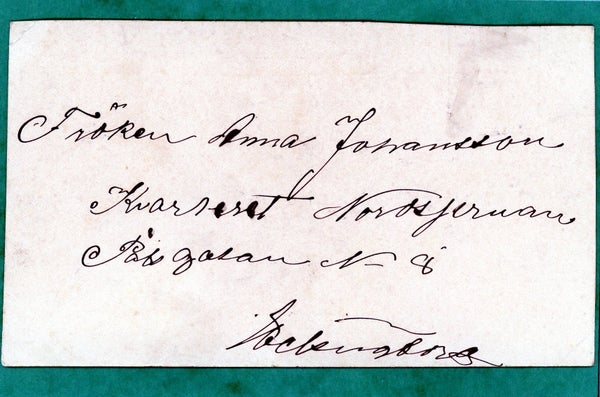 Fröken Anna Johansson
Kvarteret Nordstjernan
gatan N 8
Helsingborg